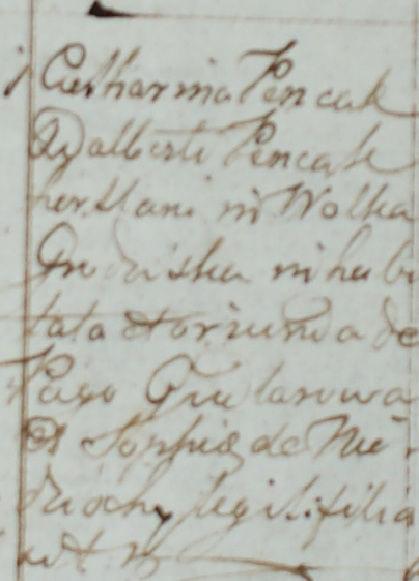 Catharina Pencak
Adalberti Pencak
in Wolka
Grodziska inhabi
tata et oriunda de
Pago Gielarowa
et Sophiæ de Nie
dziochy legit. filia